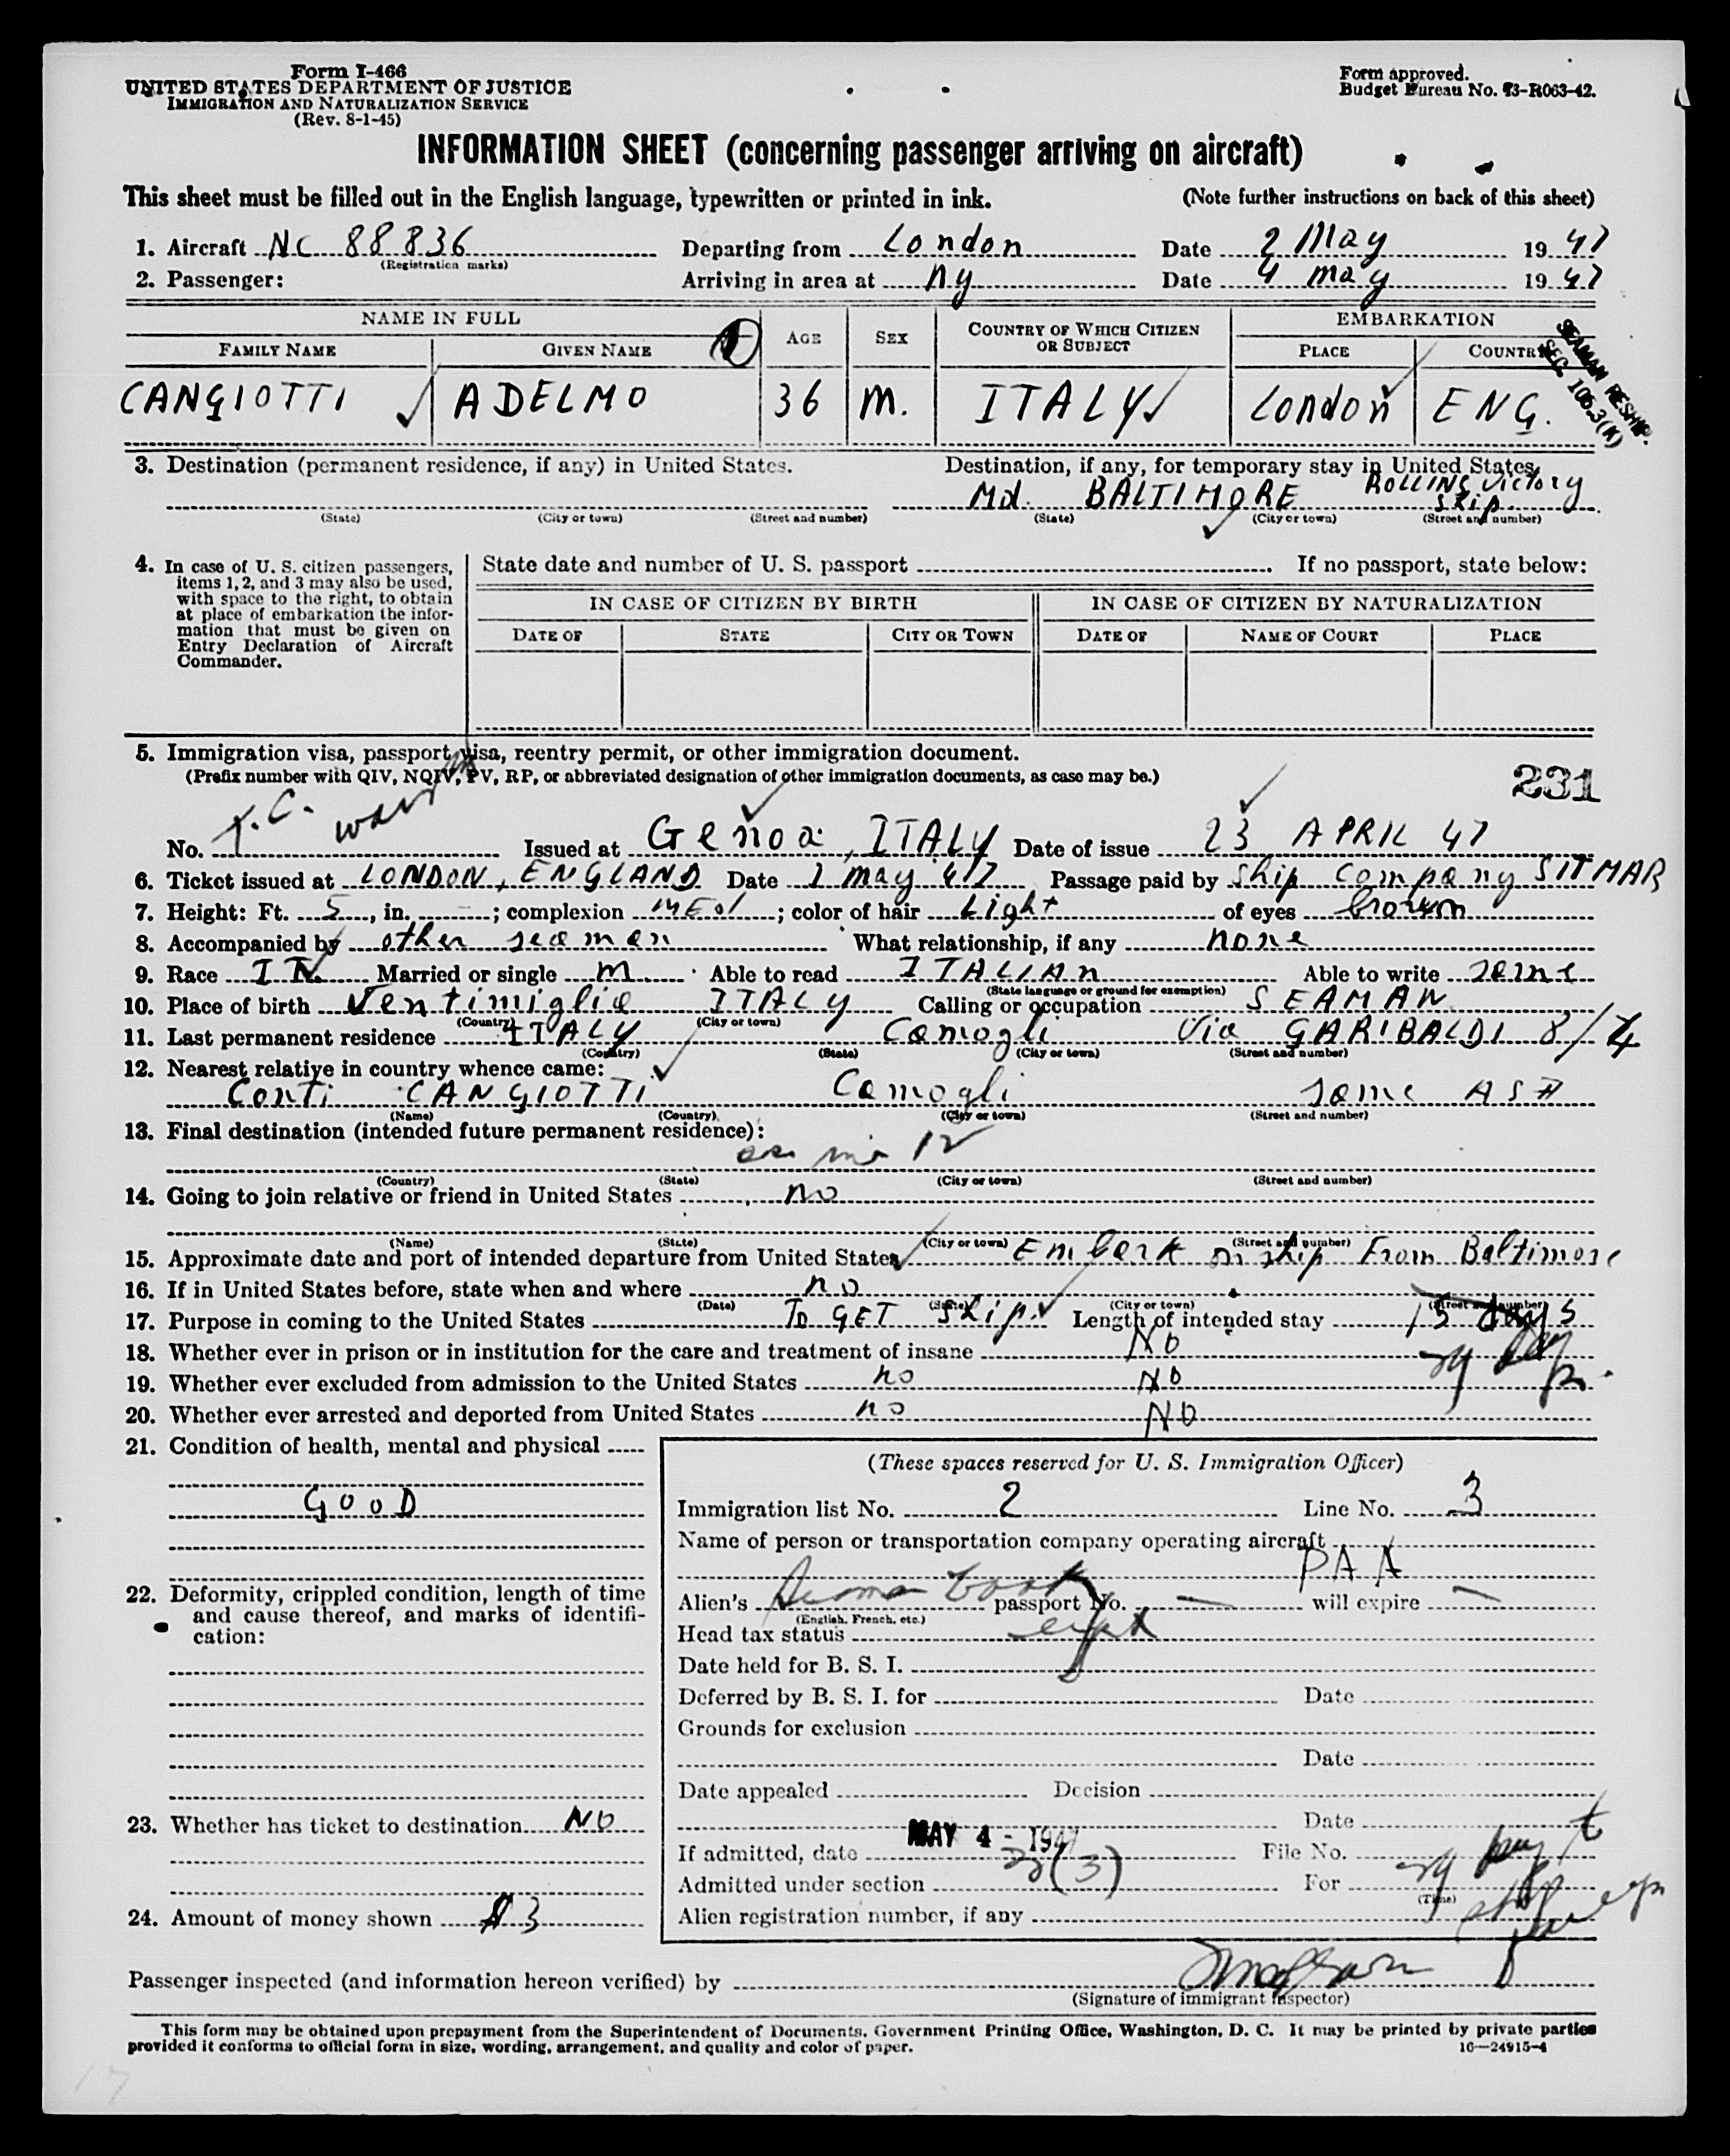 Form I-466
UNITED STATES DEPARTMENT OF JUSTICE
IMMIGRATION AND NATURALIZATION SERVICE
(Rev. 8-1-45)
Form approved.
Budget Bureau No. 43-R063-42.
INFORMATION SHEET (concerning passenger arriving on aircraft)
This sheet must be filled out in the English language, typewritten or printed in ink. (Note further instructions on back of this sheet)
1. Aircraft NC 88836 Departing from London Date 2 May 1947
(Registration marks)
2. Passenger: Arriving in area at Ny Date 4 may 1947
NAME IN FULL AGE SEX COUNTRY OF WHICH CITIZEN OR SUBJECT EMBARKATION
FAMILY NAME GIVEN NAME PLACE COUNTRY
SEAMAN RESHIP.
SEC. 106.3(K)
CANGIOTTI ADELMO 36 M. ITALY London ENG.
3. Destination (permanent residence, if any) in United States. Destination, if any, for temporary stay in United States.
Md. BALTIMORE ROLLINS Victory ship
(State) (City or town) (Street and number) (State) (City or town) (Street and number)
4. In case of U. S. citizen passengers, items 1, 2, and 3 may also be used, with space to the right, to obtain at place of embarkation the information that must be given on Entry Declaration of Aircraft Commander.
State date and number of U. S. passport If no passport, state below:
IN CASE OF CITIZEN BY BIRTH IN CASE OF CITIZEN BY NATURALIZATION
DATE OF STATE CITY OR TOWN DATE OF NAME OF COURT PLACE
5. Immigration visa, passport visa, reentry permit, or other immigration document.
(Prefix number with QIV, NQIV, PV, RP, or abbreviated designation of other immigration documents, as case may be.)
231
No. T.C. Issued at Genoa, ITALY Date of issue 23 APRIL 47
6. Ticket issued at LONDON, ENGLAND Date 1 may 47 Passage paid by Ship Company SITMAR
7. Height: Ft. 5, in. -; complexion MEd; color of hair Light of eyes brown
8. Accompanied by other seaman What relationship, if any none
9. Race IT. Married or single m. Able to read ITALIAN Able to write same
(State language or ground for exemption)
10. Place of birth Ventimiglia ITALY Calling or occupation SEAMAN
(Country) (City or town)
11. Last permanent residence ITALY Camogli Via GARIBALDI 8/4
(Country) (State) (City or town) (Street and number)
12. Nearest relative in country whence came:
Conti CANGIOTTI Camogli same AS
(Name) (Country) (City or town) (Street and number)
13. Final destination (intended future permanent residence):
12
(Country) (State) (City or town) (Street and number)
14. Going to join relative or friend in United States no
(Name) (State) (City or town) (Street and number)
15. Approximate date and port of intended departure from United States Embark on ship From Baltimore
16. If in United States before, state when and where no
(Date) (State) (City or town) (Street and number)
17. Purpose in coming to the United States To GET ship. Length of intended stay 15 days
18. Whether ever in prison or in institution for the care and treatment of insane NO
29 day
19. Whether ever excluded from admission to the United States no NO
20. Whether ever arrested and deported from United States no NO
21. Condition of health, mental and physical
GOOD
(These spaces reserved for U. S. Immigration Officer)
Immigration list No. 2 Line No. 3
Name of person or transportation company operating aircraft
PAA
22. Deformity, crippled condition, length of time and cause thereof, and marks of identification:
Alien's Seaman book passport No. — will expire —
(English, French, etc.)
Head tax status
Date held for B. S. I.
Deferred by B. S. I. for Date
Grounds for exclusion
Date
Date appealed Decision
23. Whether has ticket to destination NO
Date
If admitted, date MAY 4 - 1947 File No.
Admitted under section (3) For 29 day
(Time)
24. Amount of money shown $3
Alien registration number, if any
Passenger inspected (and information hereon verified) by
(Signature of immigrant inspector)
This form may be obtained upon prepayment from the Superintendent of Documents, Government Printing Office, Washington, D. C. It may be printed by private parties
provided it conforms to official form in size, wording, arrangement, and quality and color of paper. 16—24915-4